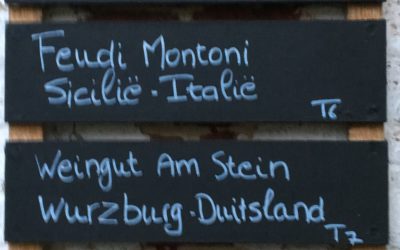 Feudi Montoni
Sicilië · Italië
T6
Weingut Am Stein
Wurzburg · Duitsland
T7